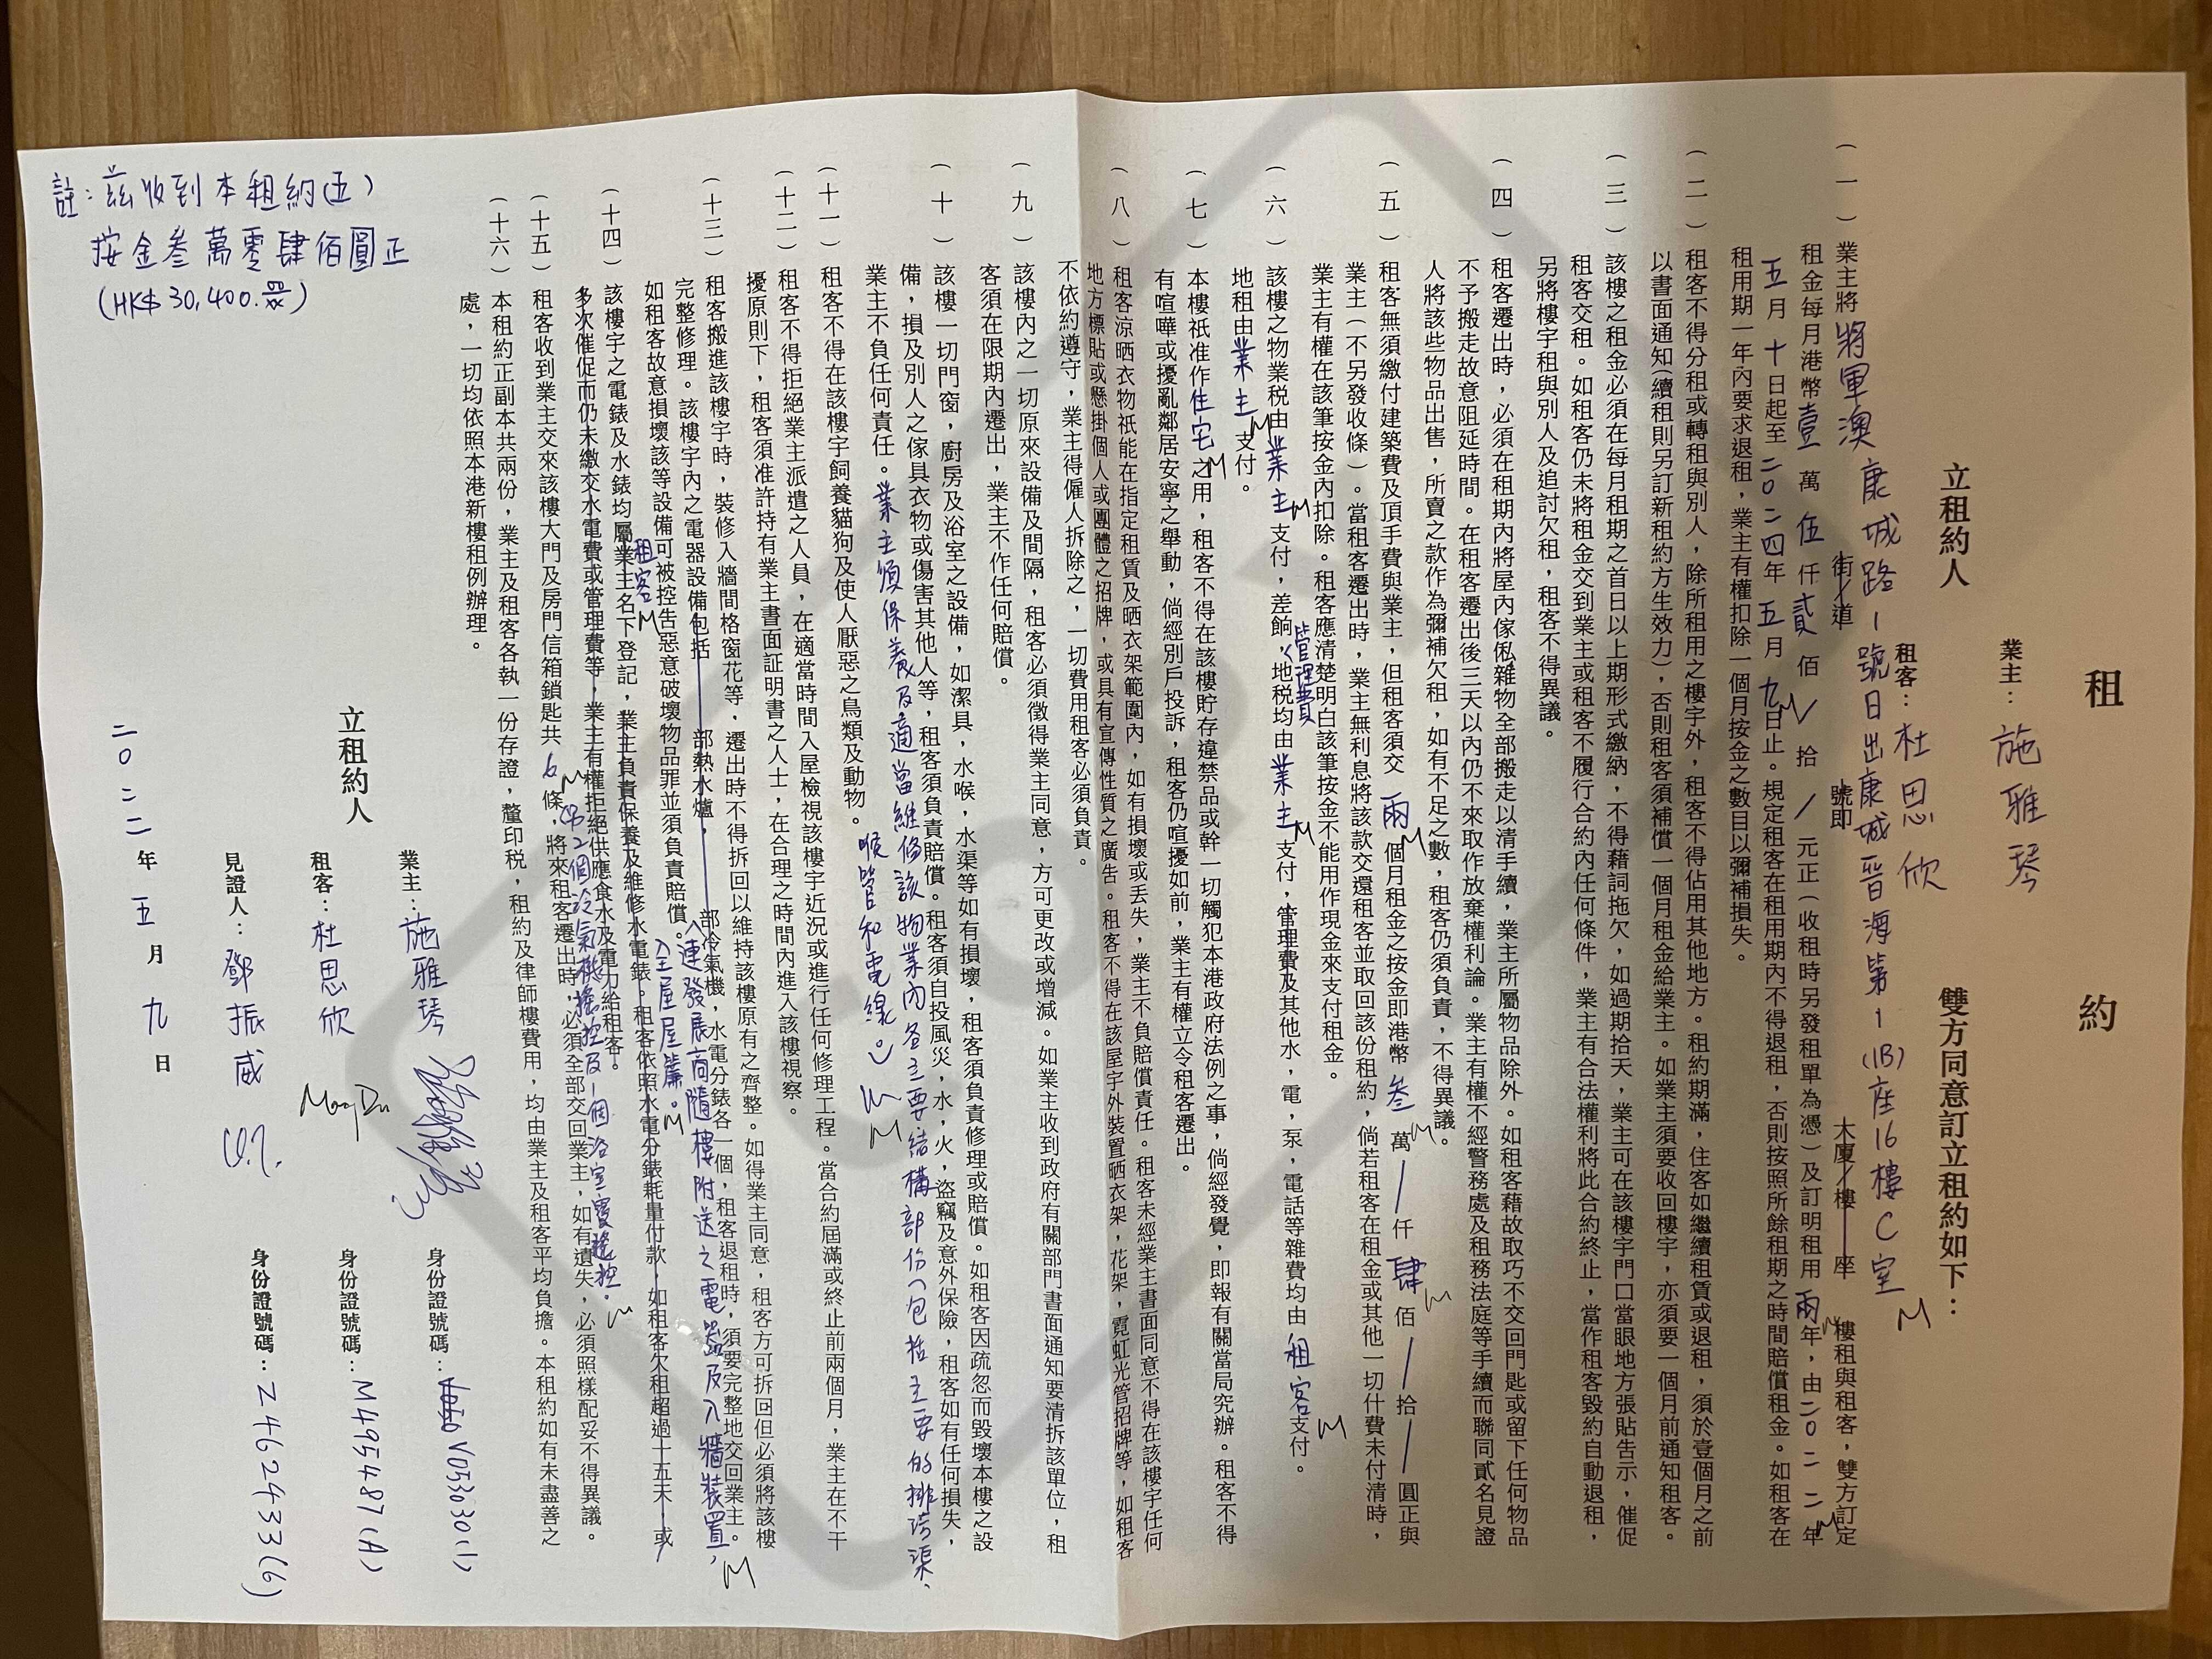 租約
業主：施雅琴
立租約人 雙方同意訂立租約如下：
租客：杜思欣
（一）業主將將軍澳康城路1號日出康城晉海第1(1B)座16樓C室 街道 號即 大廈 樓 座 樓租與租客，雙方訂定
租金每月港幣壹萬伍仟貳佰/拾/元正（收租時另發租單為憑）及訂明租用兩年，由二０二二年
五月十日起至二０二四年五月九日止。規定租客在租用期內不得退租，否則按照所餘租期之時間賠償租金。如租客在
租用期一年內要求退租，業主有權扣除一個月按金之數目以彌補損失。
（二）租客不得分租或轉租與別人，除所租用之樓宇外，租客不得佔用其他地方。租約期滿，住客如繼續租賃或退租，須於壹個月之前
以書面通知（續租則另訂新租約方生效力），否則租客須補償一個月租金給業主。如業主須要收回樓宇，亦須要一個月前通知租客。
（三）該樓之租金必須在每月租期之首日以上期形式繳納，不得藉詞拖欠，如過期拾天，業主可在該樓宇門口當眼地方張貼告示，催促
租客交租。如租客仍未將租金交到業主或租客不履行合約內任何條件，業主有合法權利將此合約終止，當作租客毀約自動退租，
另將樓宇租與別人及追討欠租，租客不得異議。
（四）租客遷出時，必須在租期內將屋內傢俬雜物全部搬走以清手續，業主所屬物品除外。如租客藉故取巧不交回門匙或留下任何物品
不予搬走故意阻延時間。在租客遷出後三天以內仍不來取作放棄權利論。業主有權不經警務處及租務法庭等手續而聯同貳名見證
人將該些物品出售，所賣之款作為彌補欠租，如有不足之數，租客仍須負責，不得異議。
（五）租客無須繳付建築費及頂手費與業主，但租客須交兩個月租金之按金即港幣叁萬/仟肆佰/拾/圓正與
業主（不另發收條）。當租客遷出時，業主無利息將該款交還租客並取回該份租約，倘若租客在租金或其他一切什費未付清時，
業主有權在該筆按金內扣除。租客應清楚明白該筆按金不能用作現金來支付租金。
（六）該樓之物業稅由業主支付，差餉、管理費 地稅均由業主支付，管理費及其他水，電，泵，電話等雜費均由租客支付。
地租由業主支付。
（七）本樓祇准作住宅之用，租客不得在該樓貯存違禁品或幹一切觸犯本港政府法例之事，倘經發覺，即報有關當局究辦。租客不得
有喧嘩或擾亂鄰居安寧之舉動，倘經別戶投訴，租客仍喧擾如前，業主有權立令租客遷出。
（八）租客涼晒衣物祇能在指定租賃及晒衣架範圍內，如有損壞或丟失，業主不負賠償責任。租客未經業主書面同意不得在該樓宇任何
地方標貼或懸掛個人或團體之招牌，或具有宣傳性質之廣告。租客不得在該屋宇外裝置晒衣架，花架，霓虹光管招牌等，如租客
不依約遵守，業主得僱人拆除之，一切費用租客必須負責。
（九）該樓內之一切原來設備及間隔，租客必須徵得業主同意，方可更改或增減。如業主收到政府有關部門書面通知要清拆該單位，租
客須在限期內遷出，業主不作任何賠償。
（十）該樓一切門窗，廚房及浴室之設備，如潔具，水喉，水渠等如有損壞，租客須負責修理或賠償。如租客因疏忽而毀壞本樓之設
備，損及別人之傢具衣物或傷害其他人等，租客須負責賠償。租客須自投風災，水，火，盜竊及意外保險，租客如有任何損失，
業主不負任何責任。業主須保養及適當維修該物業內各主要結構部份（包括主要的排污渠、
喉管和電線。）
（十一）租客不得在該樓宇飼養貓狗及使人厭惡之鳥類及動物。
（十二）租客不得拒絕業主派遣之人員，在適當時間入屋檢視該樓宇近況或進行任何修理工程。當合約屆滿或終止前兩個月，業主在不干
擾原則下，租客須准許持有業主書面証明書之人士，在合理之時間內進入該樓視察。
（十三）租客搬進該樓宇時，裝修入牆間格窗花等，遷出時不得拆回以維持該樓原有之齊整。如得業主同意，租客方可拆回但必須將該樓
完整修理。該樓宇內之電器設備包括 部熱水爐， 部冷氣機，水電分錶各一個，租客退租時，須要完整地交回業主。
連發展商隨樓附送之電器及入牆裝置，
全屋屋簾。
如租客故意損壞該等設備可被控告惡意破壞物品罪並須負責賠償。
（十四）該樓宇之電錶及水錶均屬業主名下登記，業主負責保養及維修水電錶。租客依照水電分錶耗量付款，如租客欠租超過十五天，或
租客
多次催促而仍未繳交水電費或管理費等，業主有權拒絕供應食水及電力給租客。
（十五）租客收到業主交來該樓大門及房門信箱鎖匙共6條，將來租客遷出時，必須全部交回業主，如有遺失，必須照樣配妥不得異議。
2個冷氣機搖控及1個浴室寶搖控。
（十六）本租約正副本共兩份，業主及租客各執一份存證，釐印稅，租約及律師樓費用，均由業主及租客平均負擔。本租約如有未盡善之
處，一切均依照本港新樓租例辦理。
立租約人
業主：施雅琴 身份證號碼：V053030(1)
租客：杜思欣 身份證號碼：M495487(A)
見證人：鄧振威 身份證號碼：Z462433(6)
二０二二年五月九日
註：茲收到本租約(五)
按金叁萬零肆佰圓正
(HK$30,400.)
COPY